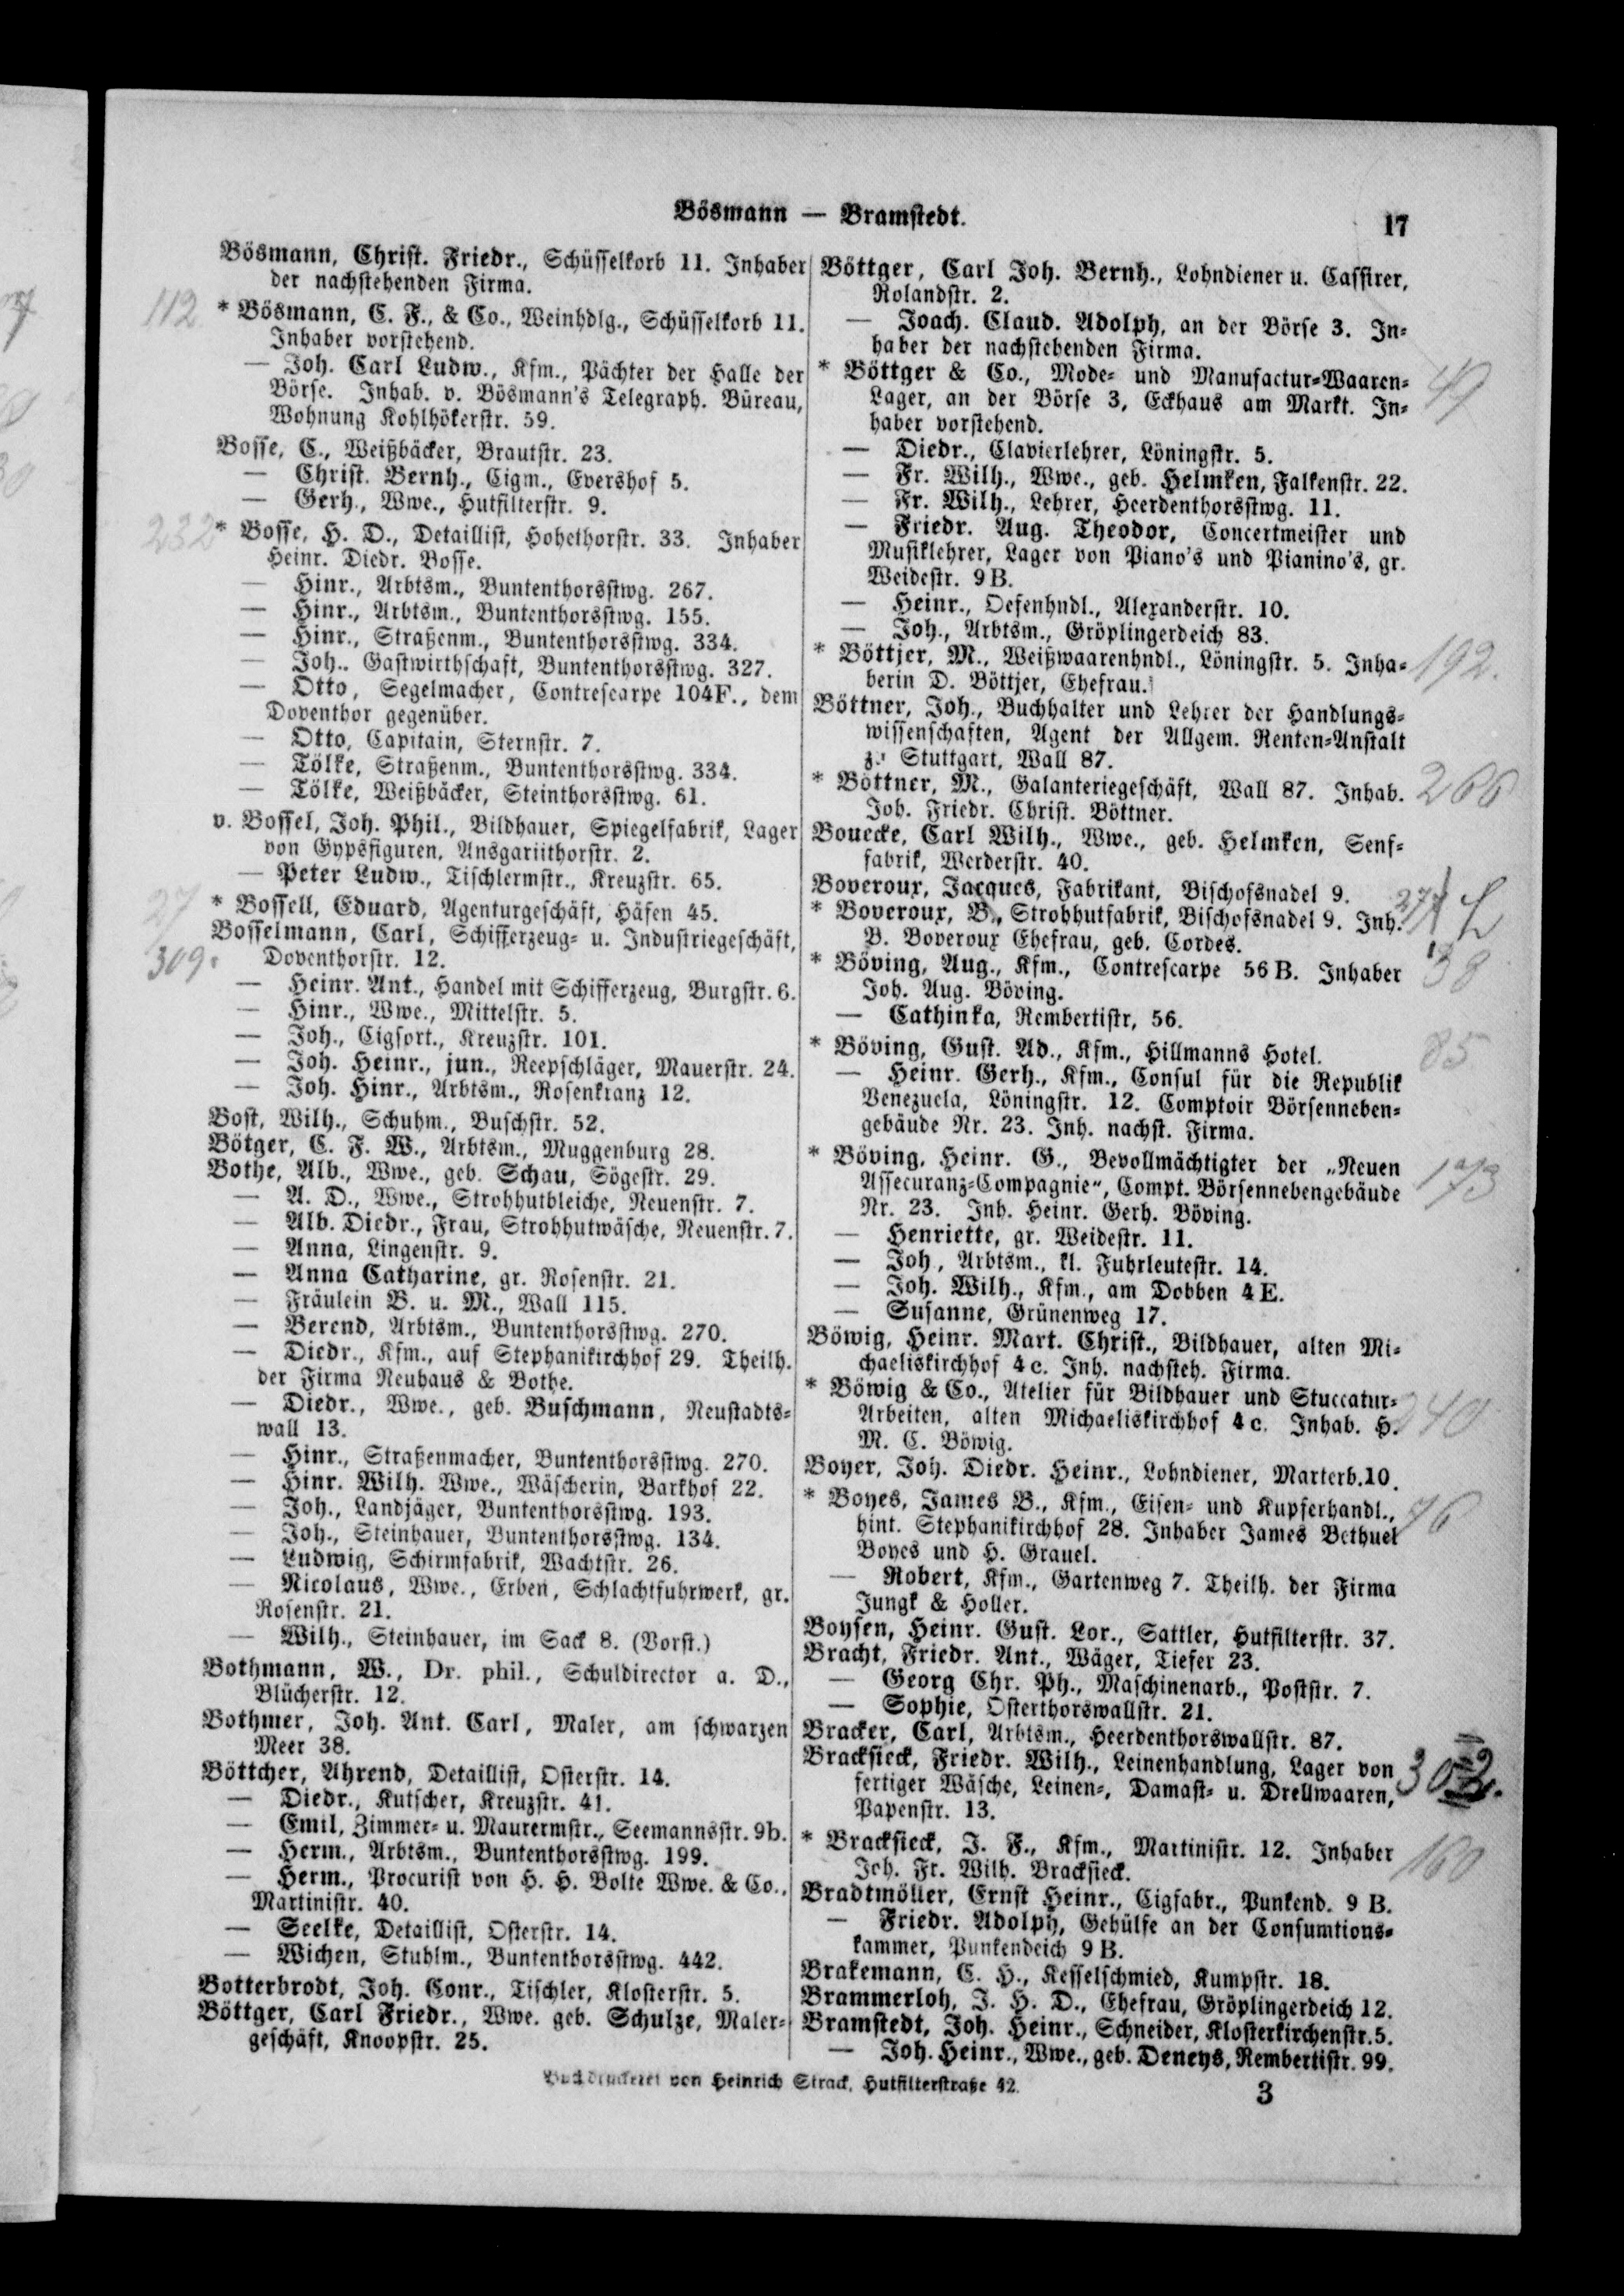 Bösmann — Bramstedt.
17
Bösmann, Christ. Friedr., Schüsselkorb 11. Inhaber
der nachstehenden Firma.
112
* Bösmann, C. F., & Co., Weinhdlg., Schüsselkorb 11.
Inhaber vorstehend.
— Joh. Carl Ludw., Kfm., Pächter der Halle der
Börse. Inhab. v. Bösmann's Telegraph. Büreau,
Wohnung Kohlhökerstr. 59.
Bosse, C., Weißbäcker, Brautstr. 23.
— Christ. Bernh., Cigm., Evershof 5.
— Gerh., Wwe., Hutfilterstr. 9.
232
* Bosse, H. D., Detaillist, Hohethorstr. 33. Inhaber
Heinr. Diedr. Bosse.
— Hinr., Arbtsm., Buntenthorsstwg. 267.
— Hinr., Arbtsm., Buntenthorsstwg. 155.
— Hinr., Straßenm., Buntenthorsstwg. 334.
— Joh., Gastwirthschaft, Buntenthorsstwg. 327.
— Otto, Segelmacher, Contrescarpe 104F., dem
Doventhor gegenüber.
— Otto, Capitain, Sternstr. 7.
— Tölke, Straßenm., Buntenthorsstwg. 334.
— Tölke, Weißbäcker, Steinthorsstwg. 61.
v. Bossel, Joh. Phil., Bildhauer, Spiegelfabrik, Lager
von Gypsfiguren, Ansgariithorstr. 2.
— Peter Ludw., Tischlermstr., Kreuzstr. 65.
27
* Bossell, Eduard, Agenturgeschäft, Häfen 45.
Bosselmann, Carl, Schifferzeug- u. Industriegeschäft,
309.
Doventhorstr. 12.
— Heinr. Ant., Handel mit Schifferzeug, Burgstr. 6.
— Hinr., Wwe., Mittelstr. 5.
— Joh., Cigsort., Kreuzstr. 101.
— Joh. Heinr., jun., Reepschläger, Mauerstr. 24.
— Joh. Hinr., Arbtsm., Rosenkranz 12.
Bost, Wilh., Schuhm., Buschstr. 52.
Bötger, C. F. W., Arbtsm., Muggenburg 28.
Bothe, Alb., Wwe., geb. Schau, Sögestr. 29.
— A. D., Wwe., Strohhutbleiche, Neuenstr. 7.
— Alb. Diedr., Frau, Strohhutwäsche, Neuenstr. 7.
— Anna, Lingenstr. 9.
— Anna Catharine, gr. Rosenstr. 21.
— Fräulein B. u. M., Wall 115.
— Berend, Arbtsm., Buntenthorsstwg. 270.
— Diedr., Kfm., auf Stephanikirchhof 29. Theilh.
der Firma Neuhaus & Bothe.
— Diedr., Wwe., geb. Buschmann, Neustadts-
wall 13.
— Hinr., Straßenmacher, Buntenthorsstwg. 270.
— Hinr. Wilh. Wwe., Wäscherin, Barkhof 22.
— Joh., Landjäger, Buntenthorsstwg. 193.
— Joh., Steinhauer, Buntenthorsstwg. 134.
— Ludwig, Schirmfabrik, Wachtstr. 26.
— Nicolaus, Wwe., Erben, Schlachtfuhrwerk, gr.
Rosenstr. 21.
— Wilh., Steinhauer, im Sack 8. (Vorst.)
Bothmann, W., Dr. phil., Schuldirector a. D.,
Blücherstr. 12.
Bothmer, Joh. Ant. Carl, Maler, am schwarzen
Meer 38.
Böttcher, Ahrend, Detaillist, Osterstr. 14.
— Diedr., Kutscher, Kreuzstr. 41.
— Emil, Zimmer- u. Maurermstr., Seemannsstr. 9b.
— Herm., Arbtsm., Buntenthorsstwg. 199.
— Herm., Procurist von H. H. Bolte Wwe. & Co.,
Martinistr. 40.
— Seelke, Detaillist, Osterstr. 14.
— Wichen, Stuhlm., Buntenthorsstwg. 442.
Botterbrodt, Joh. Conr., Tischler, Klosterstr. 5.
Böttger, Carl Friedr., Wwe. geb. Schulze, Maler-
geschäft, Knoopstr. 25.
Böttger, Carl Joh. Bernh., Lohndiener u. Cassirer,
Rolandstr. 2.
— Joach. Claud. Adolph, an der Börse 3. In-
haber der nachstehenden Firma.
* Böttger & Co., Mode- und Manufactur-Waaren-
49
Läger, an der Börse 3, Eckhaus am Markt. In-
haber vorstehend.
— Diedr., Clavierlehrer, Löningstr. 5.
— Fr. Wilh., Wwe., geb. Helmken, Falkenstr. 22.
— Fr. Wilh., Lehrer, Heerdenthorsstwg. 11.
— Friedr. Aug. Theodor, Concertmeister und
Musiklehrer, Lager von Piano's und Pianino's, gr.
Weidestr. 9B.
— Heinr., Oefenhndl., Alexanderstr. 10.
— Joh., Arbtsm., Gröplingerdeich 83.
* Böttjer, M., Weißwaarenhndl., Löningstr. 5. Inha-
192.
berin D. Böttjer, Ehefrau.
Böttner, Joh., Buchhalter und Lehrer der Handlungs-
wissenschaften, Agent der Allgem. Renten-Anstalt
zu Stuttgart, Wall 87.
* Böttner, M., Galanteriegeschäft, Wall 87. Inhab.
266
Joh. Friedr. Christ. Böttner.
Bouecke, Carl Wilh., Wwe., geb. Helmken, Senf-
fabrik, Werderstr. 40.
Boveroux, Jacques, Fabrikant, Bischofsnadel 9.
* Boveroux, B., Strohhutfabrik, Bischofsnadel 9. Inh.
B. Boveroux Ehefrau, geb. Cordes.
* Böving, Aug., Kfm., Contrescarpe 56B. Inhaber
38
Joh. Aug. Böving.
— Cathinka, Rembertistr, 56.
* Böving, Gust. Ad., Kfm., Hillmanns Hotel.
85
— Heinr. Gerh., Kfm., Consul für die Republik
Venezuela, Löningstr. 12. Comptoir Börsenneben-
gebäude Nr. 23. Inh. nachst. Firma.
* Böving, Heinr. G., Bevollmächtigter der „Neuen
173
Assecuranz-Compagnie“, Compt. Börsennebengebäude
Nr. 23. Inh. Heinr. Gerh. Böving.
— Henriette, gr. Weidestr. 11.
— Joh., Arbtsm., kl. Fuhrleutestr. 14.
— Joh. Wilh., Kfm., am Dobben 4E.
— Susanne, Grünenweg 17.
Böwig, Heinr. Mart. Christ., Bildhauer, alten Mi-
chaeliskirchhof 4c. Inh. nachsteh. Firma.
* Böwig & Co., Atelier für Bildhauer und Stuccatur-
Arbeiten, alten Michaeliskirchhof 4c. Inhab. H.
240
M. C. Böwig.
Boyer, Joh. Diedr. Heinr., Lohndiener, Marterb.10.
* Boyes, James B., Kfm., Eisen- und Kupferhandl.,
76
hint. Stephanikirchhof 28. Inhaber James Bethuel
Boyes und H. Grauel.
— Robert, Kfm., Gartenweg 7. Theilh. der Firma
Jungk & Holler.
Boysen, Heinr. Gust. Lor., Sattler, Hutfilterstr. 37.
Bracht, Friedr. Ant., Wäger, Tiefer 23.
— Georg Chr. Ph., Maschinenarb., Poststr. 7.
— Sophie, Osterthorswallstr. 21.
Bracker, Carl, Arbtsm., Heerdenthorswallstr. 87.
Bracksieck, Friedr. Wilh., Leinenhandlung, Lager von
302.
fertiger Wäsche, Leinen-, Damast- u. Drellwaaren,
Papenstr. 13.
* Bracksieck, J. F., Kfm., Martinistr. 12. Inhaber
160
Joh. Fr. Wilh. Bracksieck.
Bradtmöller, Ernst Heinr., Cigfabr., Punkend. 9 B.
— Friedr. Adolph, Gehülfe an der Consumtions-
kammer, Punkendeich 9B.
Brakemann, C. H., Kesselschmied, Kumpstr. 18.
Brammerloh, J. H. D., Ehefrau, Gröplingerdeich 12.
Bramstedt, Joh. Heinr., Schneider, Klosterkirchenstr. 5.
— Joh. Heinr., Wwe., geb. Deneys, Rembertistr. 99.
Buchdruckerei von Heinrich Strack, Hutfilterstraße 42.
3